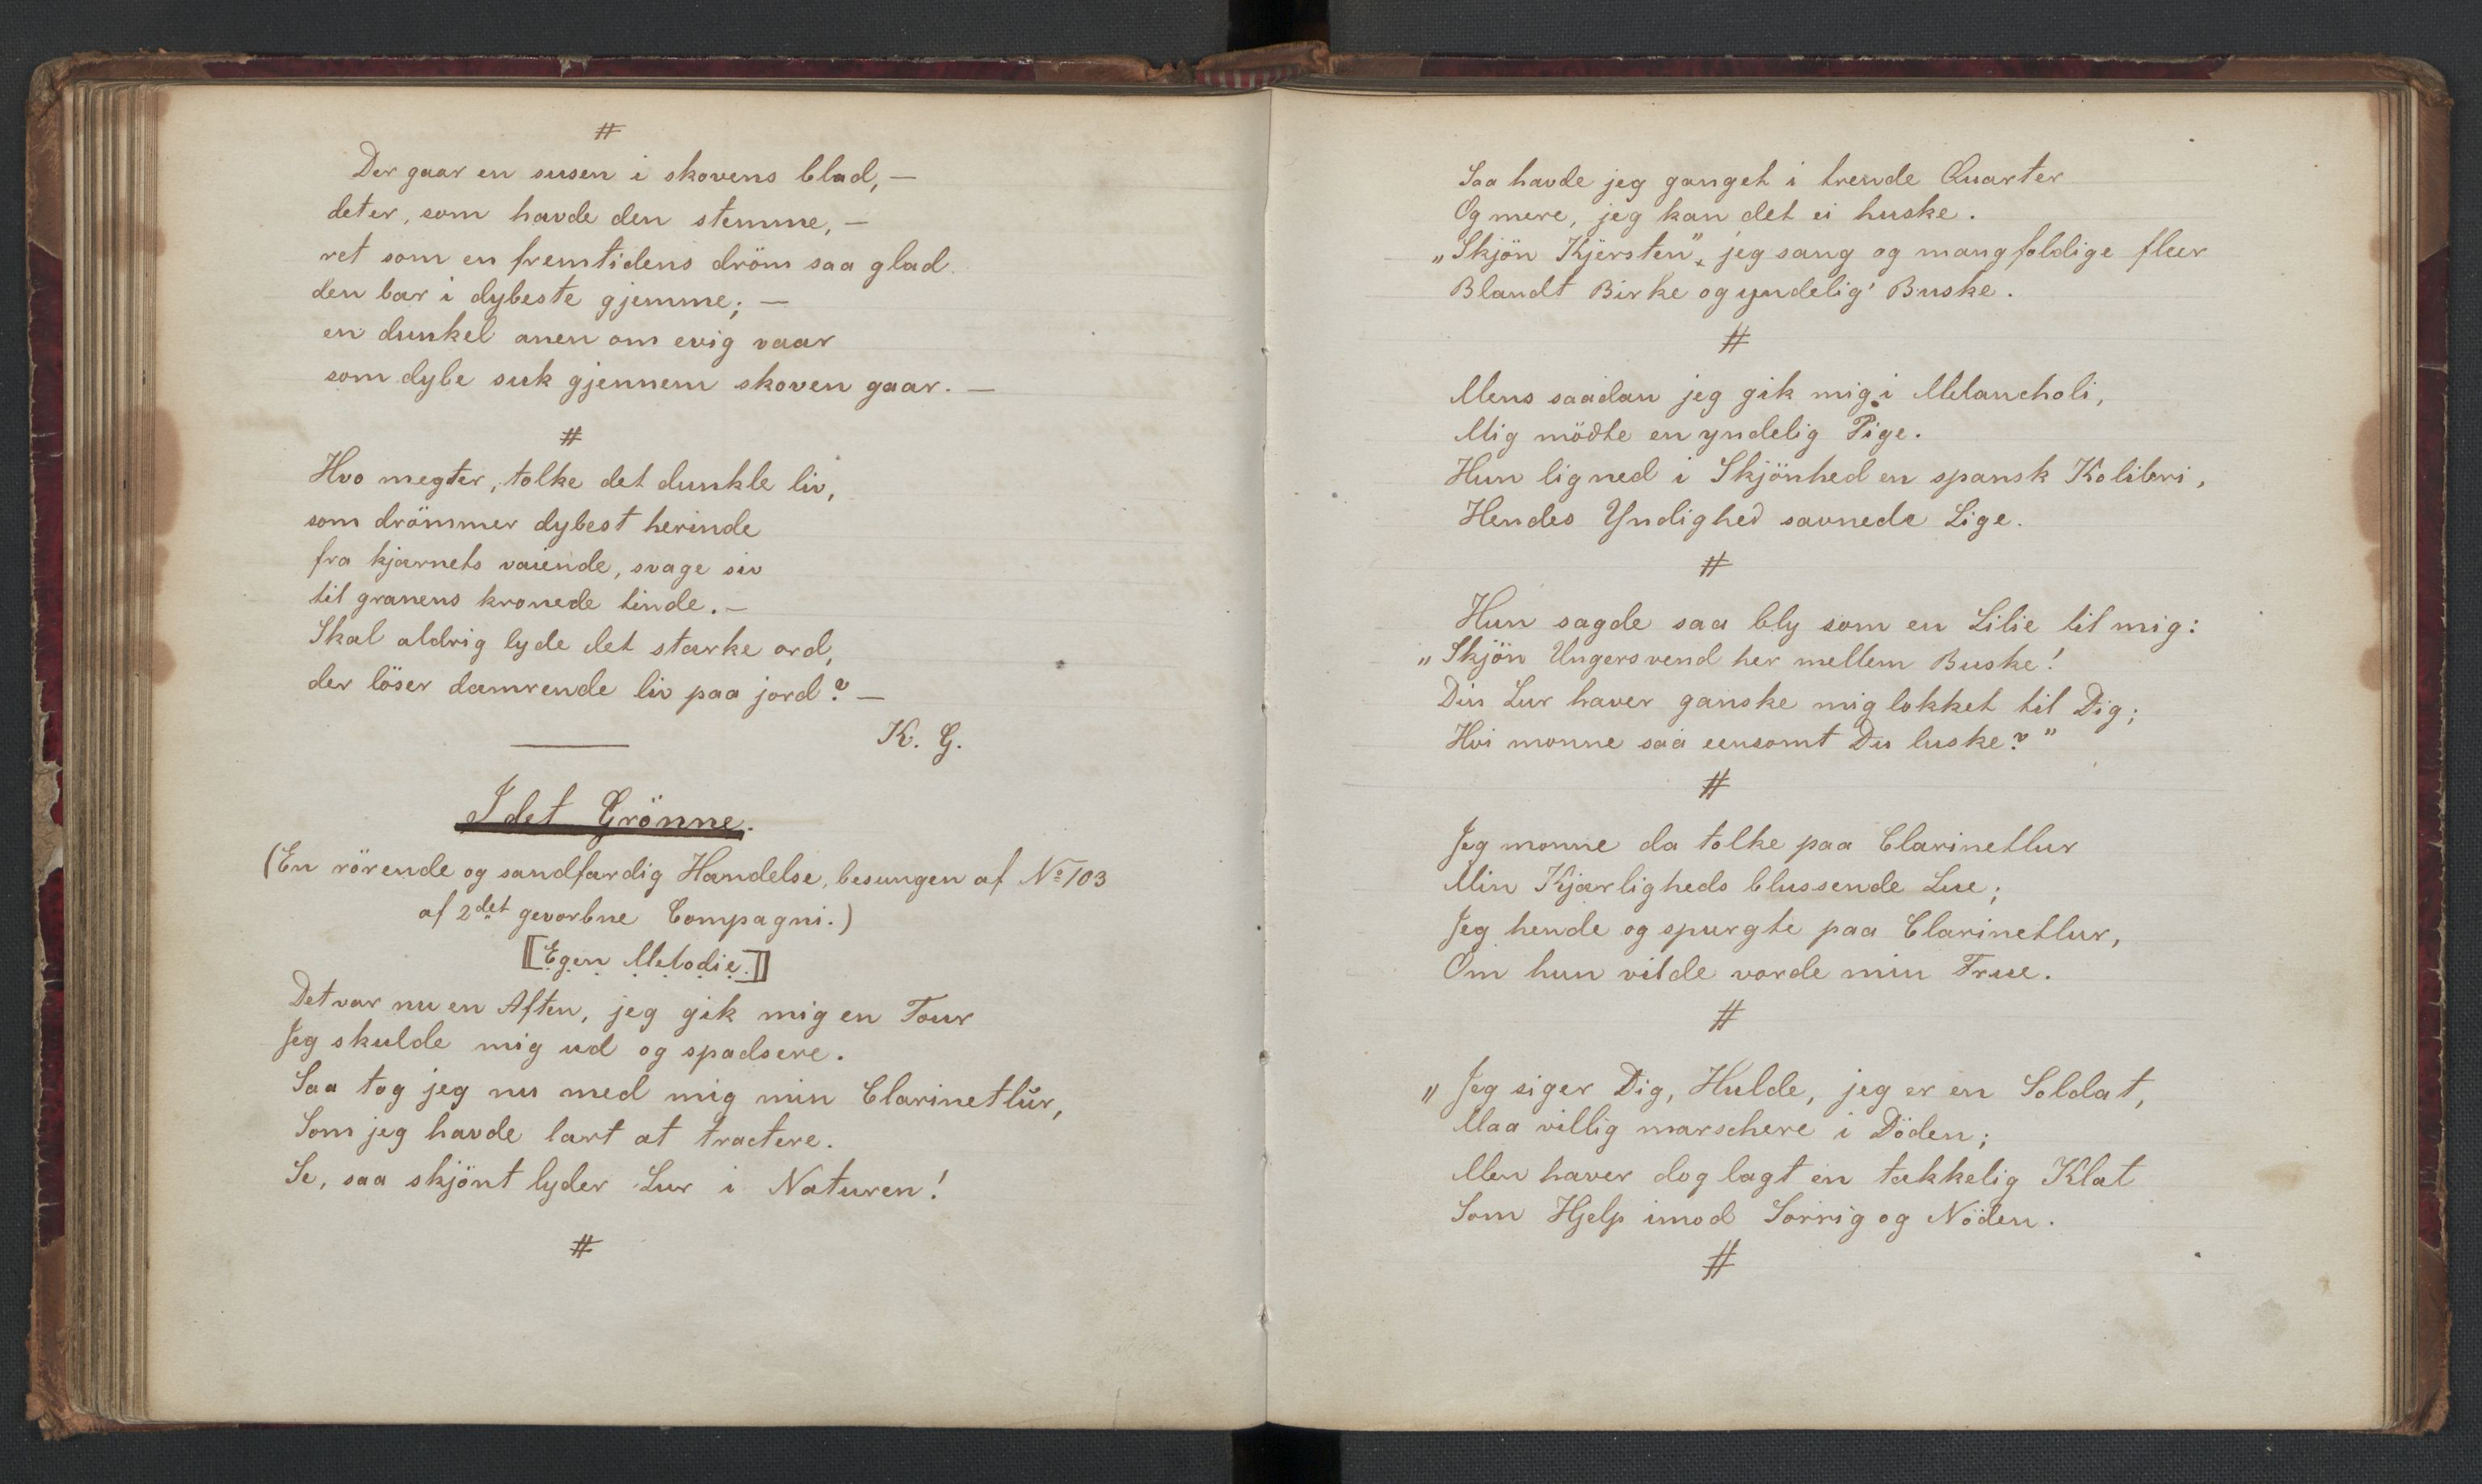 #
Der gaar en susen i skovens blad, —
det er, som havde den stemme, —
ret som en fremtidens dröm saa glad
den bar i dybeste gjemme; —
en dunkel anen om evig vaar
som dybe suk gjennem skoven gaar. —
#
Hvo megter, tolke det dunkle liv,
som drömmer dybest herinde
fra kjærnets vaiende, svage siv
til granens kronede tinde. —
Skal aldrig lyde det stærke ord,
der löser dæmrende liv paa jord? —
K. G.
I det Grönne.
(En rörende og sandfærdig Hændelse, besungen af No 103
af 2det gevorbne Compagni.)
[Egen Melodie.]
Det var nu en Aften, jeg gik mig en Tour
Jeg skulde mig ud og spadsere.
Saa tog jeg nu med mig min Clarinetlur,
Som jeg havde lært at tractere.
Se, saa skjönt lyder Lur i Naturen!
#
Saa havde jeg ganget i trende Quarter
Og mere, jeg kan det ei huske.
„Skjön Kjersten”, jeg sang og mangfoldige fleer
Blandt Birke og yndelig' Buske.
#
Mens saadan jeg gik mig i Melancholi,
Mig mödte en yndelig Pige.
Hun ligned i Skjönhed en spansk Kolibri,
Hendes Yndighed savnede Lige.
#
Hun sagde saa bly som en Lilie til mig:
„Skjön Ungersvend her mellem Buske!
Din Lur haver ganske mig lokket til Dig;
Hvi monne saa eensomt Du luske?”
#
Jeg monne da tolke paa Clarinetlur
Min Kjærligheds blussende Lue;
Jeg hende og spurgte paa Clarinetlur,
Om hun vilde vorde min Frue.
#
„Jeg siger Dig, Hulde, jeg er en Soldat,
Maa villig marschere i Döden;
Men haver dog lagt en tækkelig Klat
Som Hjelp imod Sorrig og Nöden.
#